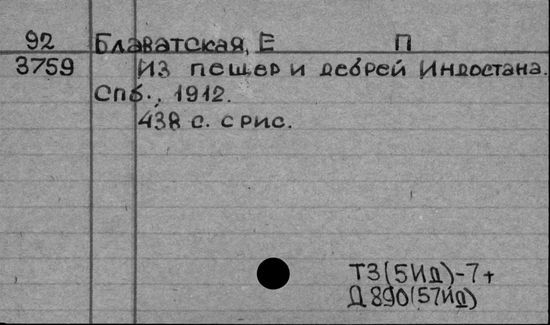 92 Блаватская, Е П
3759 Из пещер и дебрей Индостана.
Спб., 1912.
438 с. с рис.
Т3(5Ид)-7+
Д890(57Ид)